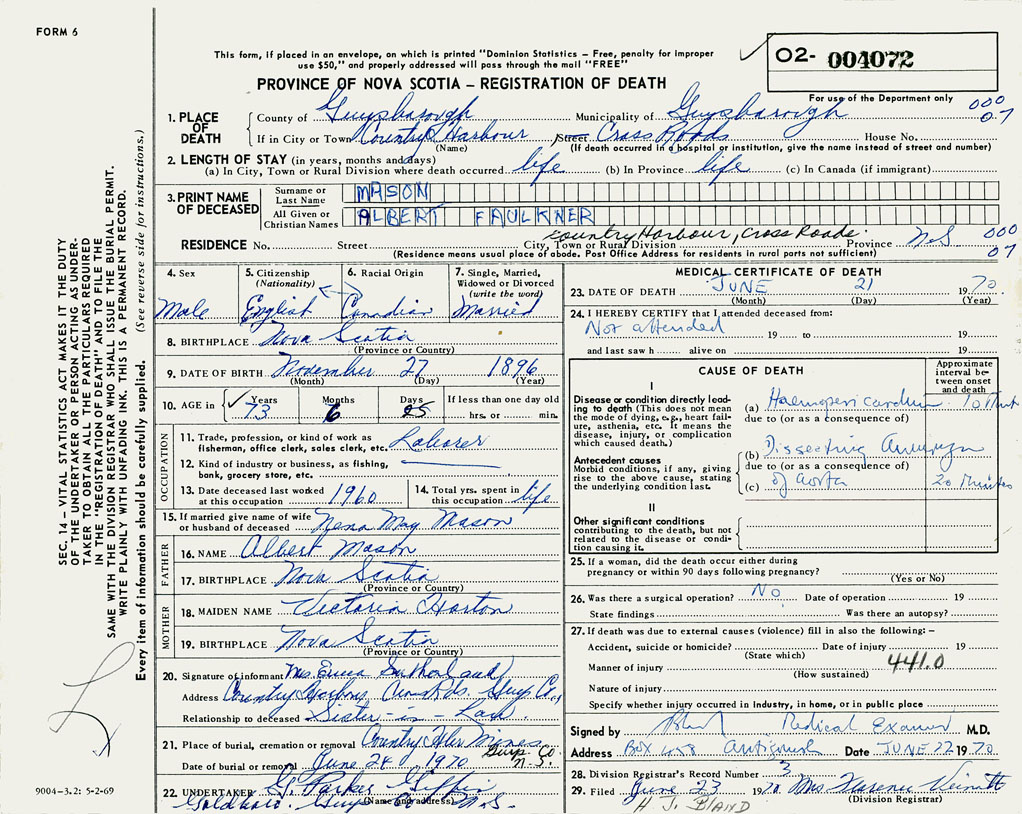 FORM 6
This form, if placed in an envelope, on which is printed "Dominion Statistics – Free, penalty for improper
use $50," and properly addressed will pass through the mail "FREE"
O2- 004072
PROVINCE OF NOVA SCOTIA – REGISTRATION OF DEATH
For use of the Department only
000
07
1. PLACE OF DEATH
County of Guysborough Municipality of Guysborough
If in City or Town Country Harbour Street Cross Roads House No.
(Name) (If death occurred in a hospital or institution, give the name instead of street and number)
2. LENGTH OF STAY (in years, months and days)
(a) In City, Town or Rural Division where death occurred life (b) In Province life (c) In Canada (if immigrant)
3. PRINT NAME OF DECEASED
Surname or Last Name MASON
All Given or Christian Names ALBERT FAULKNER
RESIDENCE No. Street City, Town or Rural Division Country Harbour, Cross Roads. Province N.S
000
07
(Residence means usual place of abode. Post Office Address for residents in rural parts not sufficient)
4. Sex
Male
5. Citizenship
(Nationality)
English
6. Racial Origin
Canadian
7. Single, Married,
Widowed or Divorced
(write the word)
Married
8. BIRTHPLACE Nova Scotia
(Province or Country)
9. DATE OF BIRTH November 27 1896
(Month) (Day) (Year)
10. AGE in Years Months Days If less than one day old
73 6 25 hrs. or min.
OCCUPATION
11. Trade, profession, or kind of work as
fisherman, office clerk, sales clerk, etc. Laborer
12. Kind of industry or business, as fishing,
bank, grocery store, etc.
13. Date deceased last worked
at this occupation 1960
14. Total yrs. spent in
this occupation life
15. If married give name of wife
or husband of deceased Nena May Mason
FATHER
16. NAME Albert Mason
17. BIRTHPLACE Nova Scotia
(Province or Country)
MOTHER
18. MAIDEN NAME Victoria Horton
19. BIRTHPLACE Nova Scotia
(Province or Country)
20. Signature of informant Mrs. Emma Sutherland
Address Country Harbour Guys Co.
Relationship to deceased Sister-in-Law.
21. Place of burial, cremation or removal Country Hbr Mines
Guys Co.
N.S.
Date of burial or removal June 24 1970
22. UNDERTAKER G. Parker Giffin
(Name and address)
Goldboro. Guys N.S.
9004–3.2: 5-2-69
SEC. 14 – VITAL STATISTICS ACT MAKES IT THE DUTY
OF THE UNDERTAKER OR PERSON ACTING AS UNDER-
TAKER TO OBTAIN ALL THE PARTICULARS REQUIRED
IN THE "REGISTRATION OF DEATH" AND TO FILE THE
SAME WITH THE DIVISION REGISTRAR WHO SHALL ISSUE THE BURIAL PERMIT.
WRITE PLAINLY WITH UNFADING INK. THIS IS A PERMANENT RECORD.
Every item of information should be carefully supplied. (See reverse side for instructions.)
MEDICAL CERTIFICATE OF DEATH
23. DATE OF DEATH JUNE 21 1970
(Month) (Day) (Year)
24. I HEREBY CERTIFY that I attended deceased from:
Not attended 19 to 19
and last saw h alive on 19
CAUSE OF DEATH
Approximate interval be-tween onset and death
I
Disease or condition directly lead-
ing to death (This does not mean
the mode of dying, e.g., heart fail-
ure, asthenia, etc. It means the
disease, injury, or complication
which caused death.)
(a) Haemopericardium 10 Minut
due to (or as a consequence of)
Antecedent causes
Morbid conditions, if any, giving
rise to the above cause, stating
the underlying condition last.
(b) Dissecting Aneurysm
due to (or as a consequence of)
(c) of Aorta 20 Minutes
II
Other significant conditions
contributing to the death, but not
related to the disease or condi-
tion causing it.
25. If a woman, did the death occur either during
pregnancy or within 90 days following pregnancy?
(Yes or No)
26. Was there a surgical operation? No Date of operation 19
State findings Was there an autopsy?
27. If death was due to external causes (violence) fill in also the following: –
Accident, suicide or homicide? Date of injury 19
(State which)
441.0
Manner of injury
(How sustained)
Nature of injury
Specify whether injury occurred in industry, in home, or in public place
Signed by Medical Examiner M.D.
Address BOX 458 Antigonish Date JUNE 22 1970
28. Division Registrar's Record Number 3
29. Filed June 23 1970 Mrs Clarence
(Division Registrar)
H J. BLAND